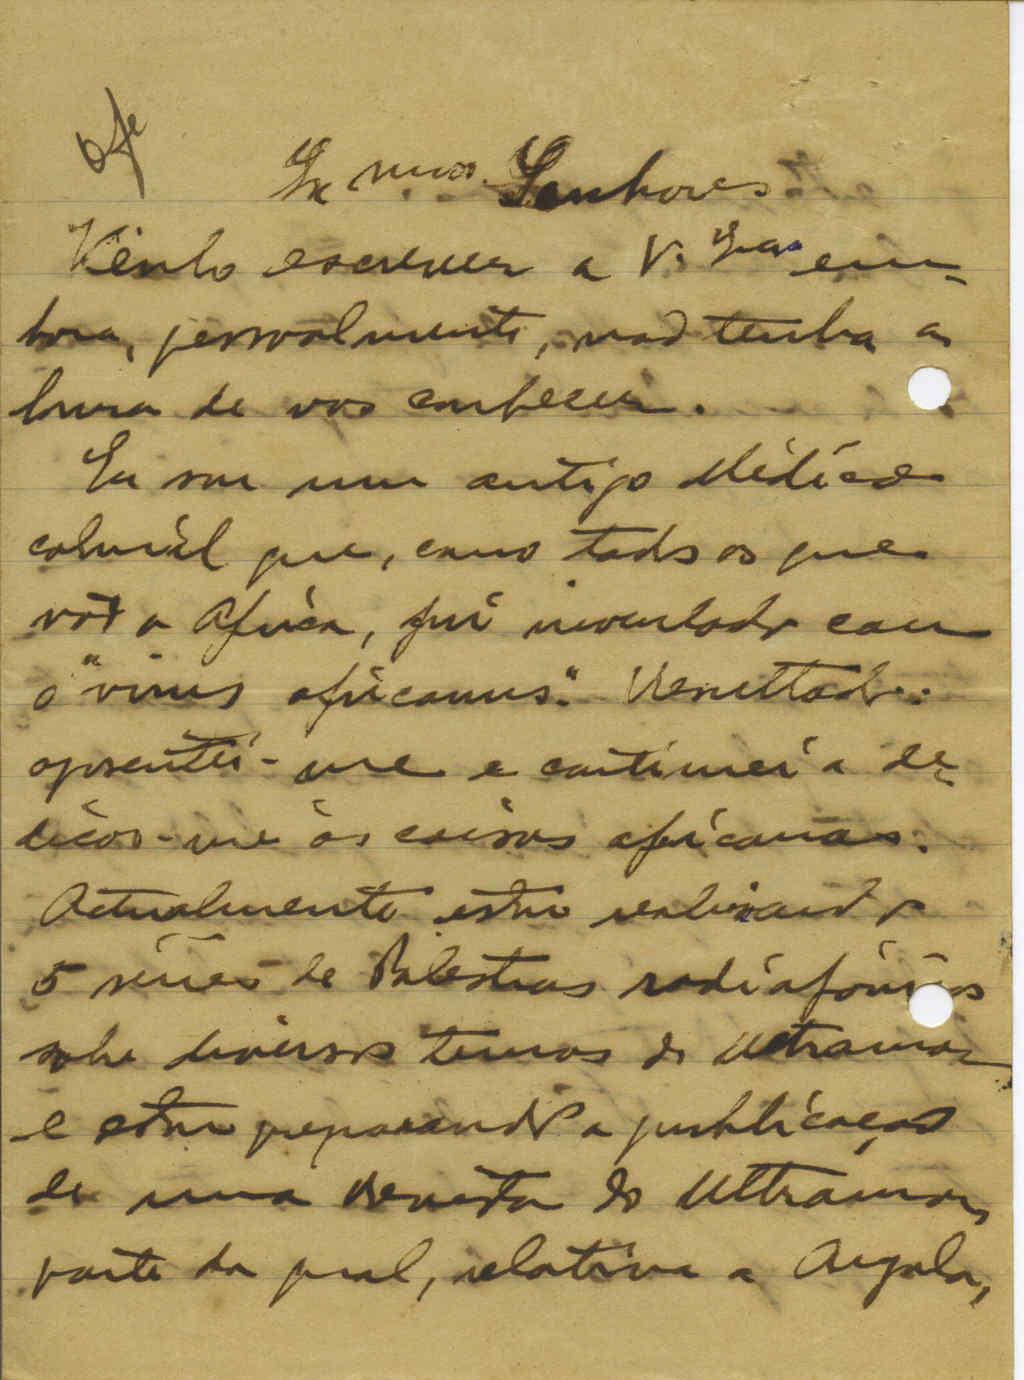 Exmos. Senhores
Venho escrever a V. Exas em-
bora, pessoalmente, não tenha a
honra de vos conhecer.
Eu sou um antigo Médico
colonial que, como todos os que
vão a Africa, fui inoculado com
o "virus africanus". Resultado:
aposentei-me e continuei a de-
dicar-me ás coisas africanas.
Actualmente estou realizando
5 séries de Palestras radiofónicas
sobre diversos temas do Ultramar
e estou preparando a publicação
de uma Revista do Ultramar,
parte da qual, relativa a Angola,